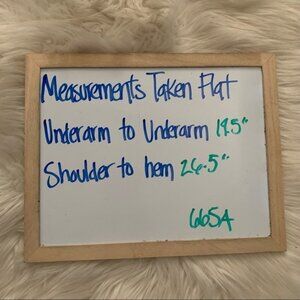 Measurements Taken Flat
Underarm to Underarm 19.5"
Shoulder to hem 26.5"
665A